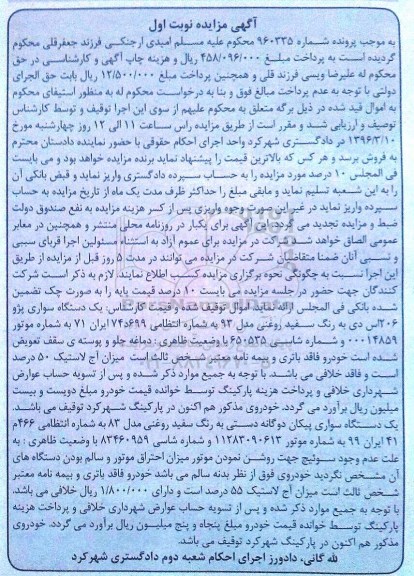 آگهی مزایده نوبت اول
به موجب پرونده شماره ۹۶۰۳۳۵ محکوم علیه مسلم امیدی ارجنکی فرزند جعفرقلی محکوم
گردیده است به پرداخت مبلغ ۴۵۸/۰۹۶/۰۰۰ ریال و هزینه چاپ آگهی و کارشناسی در حق
محکوم له علیرضا ویسی فرزند قلی و همچنین پرداخت مبلغ ۱۲/۵۰۰/۰۰۰ ریال بابت حق الجرای
دولتی با توجه به عدم پرداخت مبالغ فوق و بنا به درخواست محکوم له به منظور استیفای محکوم
به اموال قید شده در ذیل برگه متعلق به محکوم علیهم از سوی این اجرا توقیف و توسط کارشناس
توصیف و ارزیابی شد و مقرر است از طریق مزایده راس ساعت ۱۱ الی ۱۲ روز چهارشنبه مورخ
۱۳۹۶/۳/۱۰ در دادگستری شهرکرد واحد اجرای احکام حقوقی با حضور نماینده دادستان محترم
به فروش برسد و هر کس که بالاترین قیمت را پیشنهاد نماید برنده مزایده خواهد بود و می بایست
فی المجلس ۱۰ درصد مورد مزایده را به حساب سپرده دادگستری واریز نماید و قبض بانکی آن
را به این شعبه تسلیم نماید و مابقی مبلغ را حداکثر ظرف مدت یک ماه از تاریخ مزایده به حساب
سپرده واریز نماید در غیر این صورت وجوه واریزی پس از کسر هزینه مزایده به نفع صندوق دولت
ضبط و مزایده تجدید می گردد این آگهی برای یکبار در روزنامه محلی منتشر و همچنین در معابر
عمومی الصاق خواهد شد. شرکت در مزایده برای عموم آزاد به استثناء مسئولین اجرا قربای سببی
و نسبی آنان ضمنا متقاضیان شرکت در مزایده می توانند در مدت ۵ روز قبل از مزایده از طریق
این اجرا نسبت به چگونگی نحوه برگزاری مزایده کسب اطلاع نمایند. لازم به ذکر است شرکت
کنندگان جهت حضور در جلسه مزایده می بایست ۱۰ درصد قیمت پایه را به صورت چک تضمین
شده بانکی فی المجلس ارائه نماید. اموال توقیف شده و قیمت کارشناس: یک دستگاه سواری پژو
۲۰۶اس دی به رنگ سفید روغنی مدل ۹۳ به شماره انتظامی ۷۴د۶۹۹ ایران ۷۱ به شماره موتور
۰۰۰۱۴۸۵۹ و شماره شاسی ۶۵۰۵۲۵ با وضعیت ظاهری : دماغه جلو و پوسته ی سقف تعویض
شده است خودرو فاقد باتری و بیمه نامه معتبر شخص ثالث است میزان آج لاستیک ۵۰ درصد
است و فاقد خلافی می باشد. با توجه به جمیع موارد ذکر شده و پس از تسویه حساب عوارض
شهرداری خلافی و پرداخت هزینه پارکینگ توسط خوانده قیمت خودرو مبلغ دویست و بیست
میلیون ریال برآورد می گردد. خودروی مذکور هم اکنون در پارکینگ شهرکرد توقیف می باشد.
یک دستگاه سواری پیکان دوگانه دستی به رنگ سفید روغنی مدل ۸۳ به شماره انتظامی ۴۶۶م
۴۱ ایران ۹۹ به شماره موتور ۱۱۲۸۳۰۹۰۶۱۳ و شماره شاسی ۸۳۴۶۰۹۵۹ با وضعیت ظاهری : به
علت عدم وجود سوئیچ جهت روشن نمودن موتور میزان احتراق موتور و سالم بودن دستگاه های
آن مشخص نگردید خودروی فوق از نظر بدنه سالم می باشد خودرو فاقد باتری و بیمه نامه معتبر
شخص ثالث است میزان آج لاستیک ۵۵ درصد است و دارای ۱/۸۰۰/۰۰۰ ریال خلافی می باشد.
با توجه به جمیع موارد ذکر شده و پس از تسویه حساب عوارض شهرداری خلافی و پرداخت هزینه
پارکینگ توسط خوانده قیمت خودرو مبلغ پنجاه و پنج میلیون ریال برآورد می گردد. خودروی
مذکور هم اکنون در پارکینگ شهرکرد توقیف می باشد.
لله گانی، دادورز اجرای احکام شعبه دوم دادگستری شهرکرد